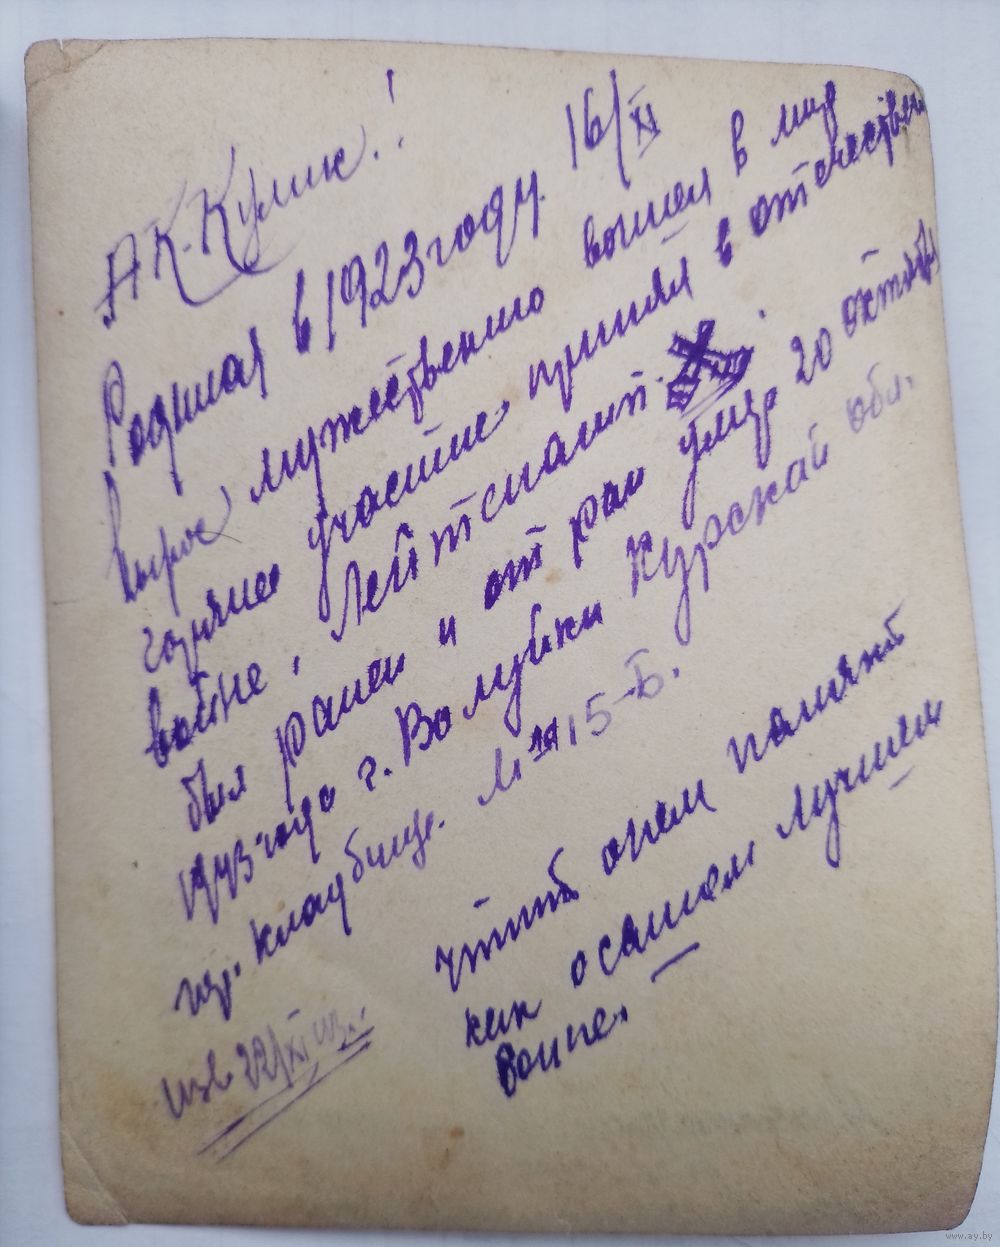 А.К. Кулик.!
Родился в 1923 году. 16/XI
вырос мужественно вошел в мир
горячее участие принял в отечествен
войне. Лейтенант.
был ранен и от ран умер 20 октября
1943 года г. Валуйки Курской обл.
гр. кладбище. М. № 15-Б.
чтить о нем память
как о самом лучшем
воине.
изв 22/XI
www.ay.by